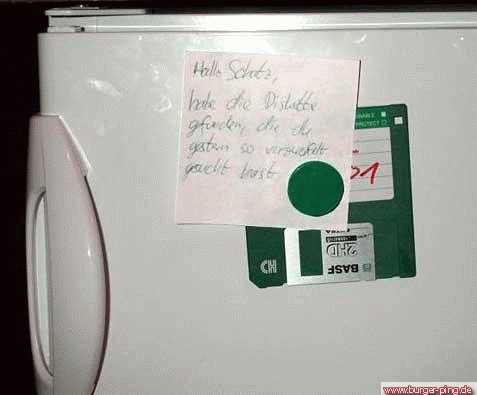 Hallo Schatz,
habe die Diskette
gefunden, die du
gestern so verzweifelt
gesucht hast
PROTECT
01
2HD
BASF
www.burger-ping.de